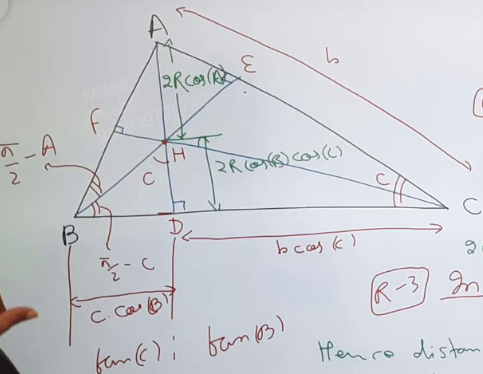 A
b
E
2R cos(A)
F
π/2 - A
H
C
2R cos(B) cos(C)
C
C
B
D
π/2 - C
b cos(C)
c. cos(B)
R-3
tan(C) : tan(B)
Hence distan